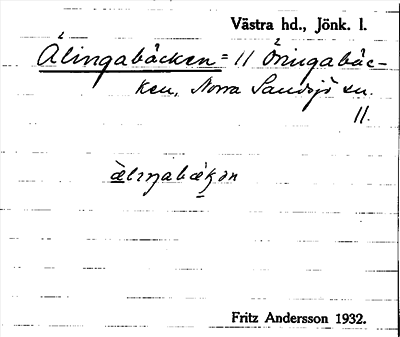 Västra hd., Jönk. l.
Älingabäcken = 11 Öningabäc-
ken, Norra Sandsjö sn.
11.
älıŋabäkən
Fritz Andersson 1932.